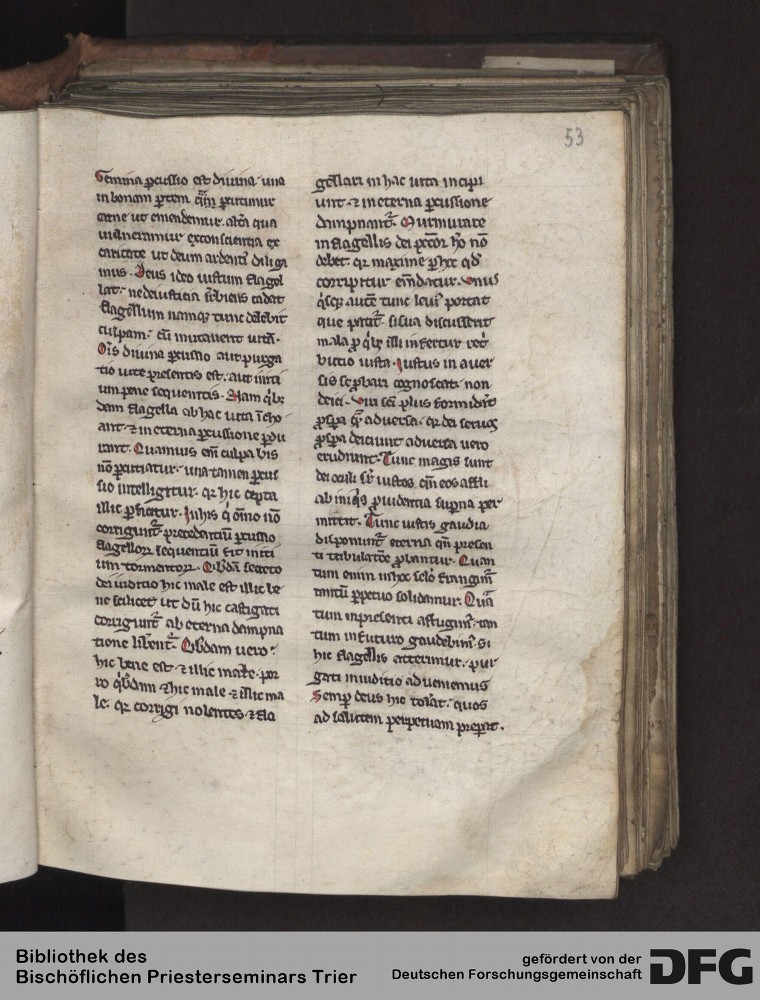 53
Gemina ꝑcussio est diuina· una
in bonam ꝑtem qua ꝑcutimur
carne ut emendemur· alt̾a qua
uulneramur ex conscientia ex
caritate ut deum ardenti᷒ diliga
mus· Deus ideo iustum flagel
lat· ne de iusticia suꝑbiens cadat
flagellum namqꝫ tunc delebit
culpam· cū mutauerit uitā·
Oīs diuina ꝑcussio aut purga
tio uite presentis est· aut initi
um pene sequentis· Nam qͥbꝫ
dam flagella ab hac uita īcho
ant· ⁊ in eterna ꝑcussione ꝑdu
rant· Quamuis eīm culpa bis
nō ꝑcutiatur· una tamen ꝑcus
sio intelligitur· qꝛ hic cepta
illic ꝑficitur· In his q̇ oīno nō
corrigunt̾· precedentiū ꝑcussio
flagelloꝝ sequentiū fit initi
um tormentoꝝ· Qͥbdā secreto
dei iuditio hic male est illic be
ne scilicet ut dū hic castigati
corrigunt̾ ab eterna dampna
tione lib̾ent̾· Qͥbdam uero·
hic bene est· ⁊ illic male· por
ro qͥbdam ⁊ hic male ⁊ illic ma
le· qꝛ corrigi nolentes· ⁊ fla
gellari in hac uita incipi
unt· ⁊ in eterna ꝑcussione
dampnant̾· Murmurare
in flagellis dei pctōr hō nō
debet· qꝛ maxime ꝑ hoc qd̕
corripitur em̄datur· Vnus
qͥsqꝫ aut̄ tunc leui᷒ portat
que patit̾· si sua discusserit
mala ꝓ qͥbꝫ illi infertur ret̾
butio iusta· Iustus in auer
sis se ꝓbari cognoscat· non
deici· Viri sc̄i plus formidāt
ꝓspa qͣ̄ aduersa· qꝛ dei seruos
ꝓspa deiciunt aduersa uero
erudiunt· Tunc magis sunt
dei oculi suꝑ iustos qm̄ eos affli
ab iniqͥs ꝓuidentia suꝑna per
mittit· Tunc iustis gaudia
disponunt̾ eterna qn̄ presen
ti tribulatōe ꝓbantur· Quan
tum enim in hoc sclō frangim᷒
tantū ꝑpetuo solidamur· Quā
tum in presenti affligim᷒· tan
tum in futuro gaudebim᷒· Si
hic flagellis atterimur· pur
gati in iuditio adueniemus
Semꝑ deus hic uuln̾at· quos
ad salutem perpetuam preꝑat·
Bibliothek des
Bischöflichen Priesterseminars Trier
gefördert von der
Deutschen Forschungsgemeinschaft
DFG